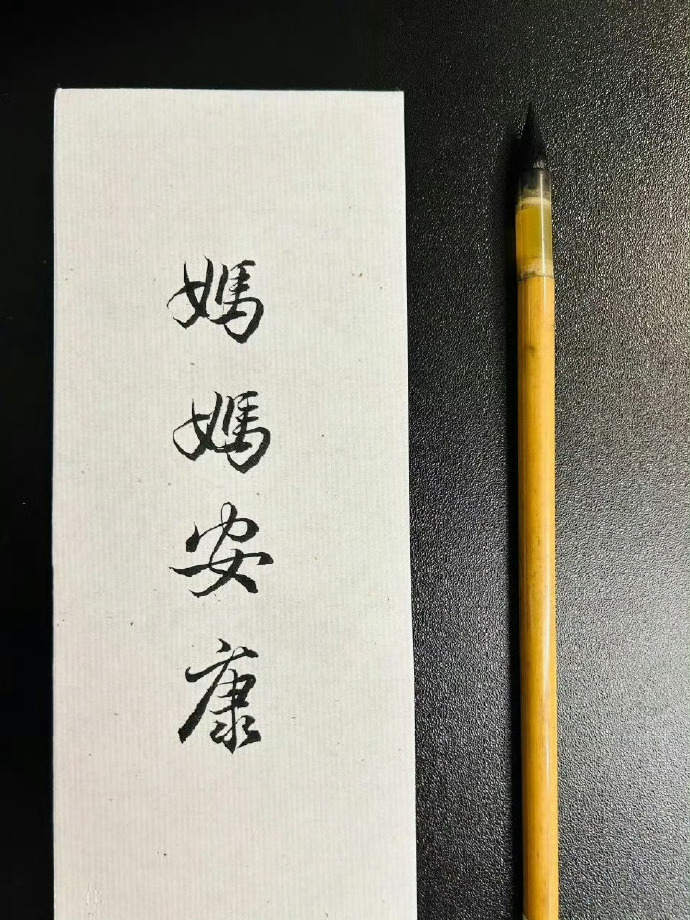 媽媽安康